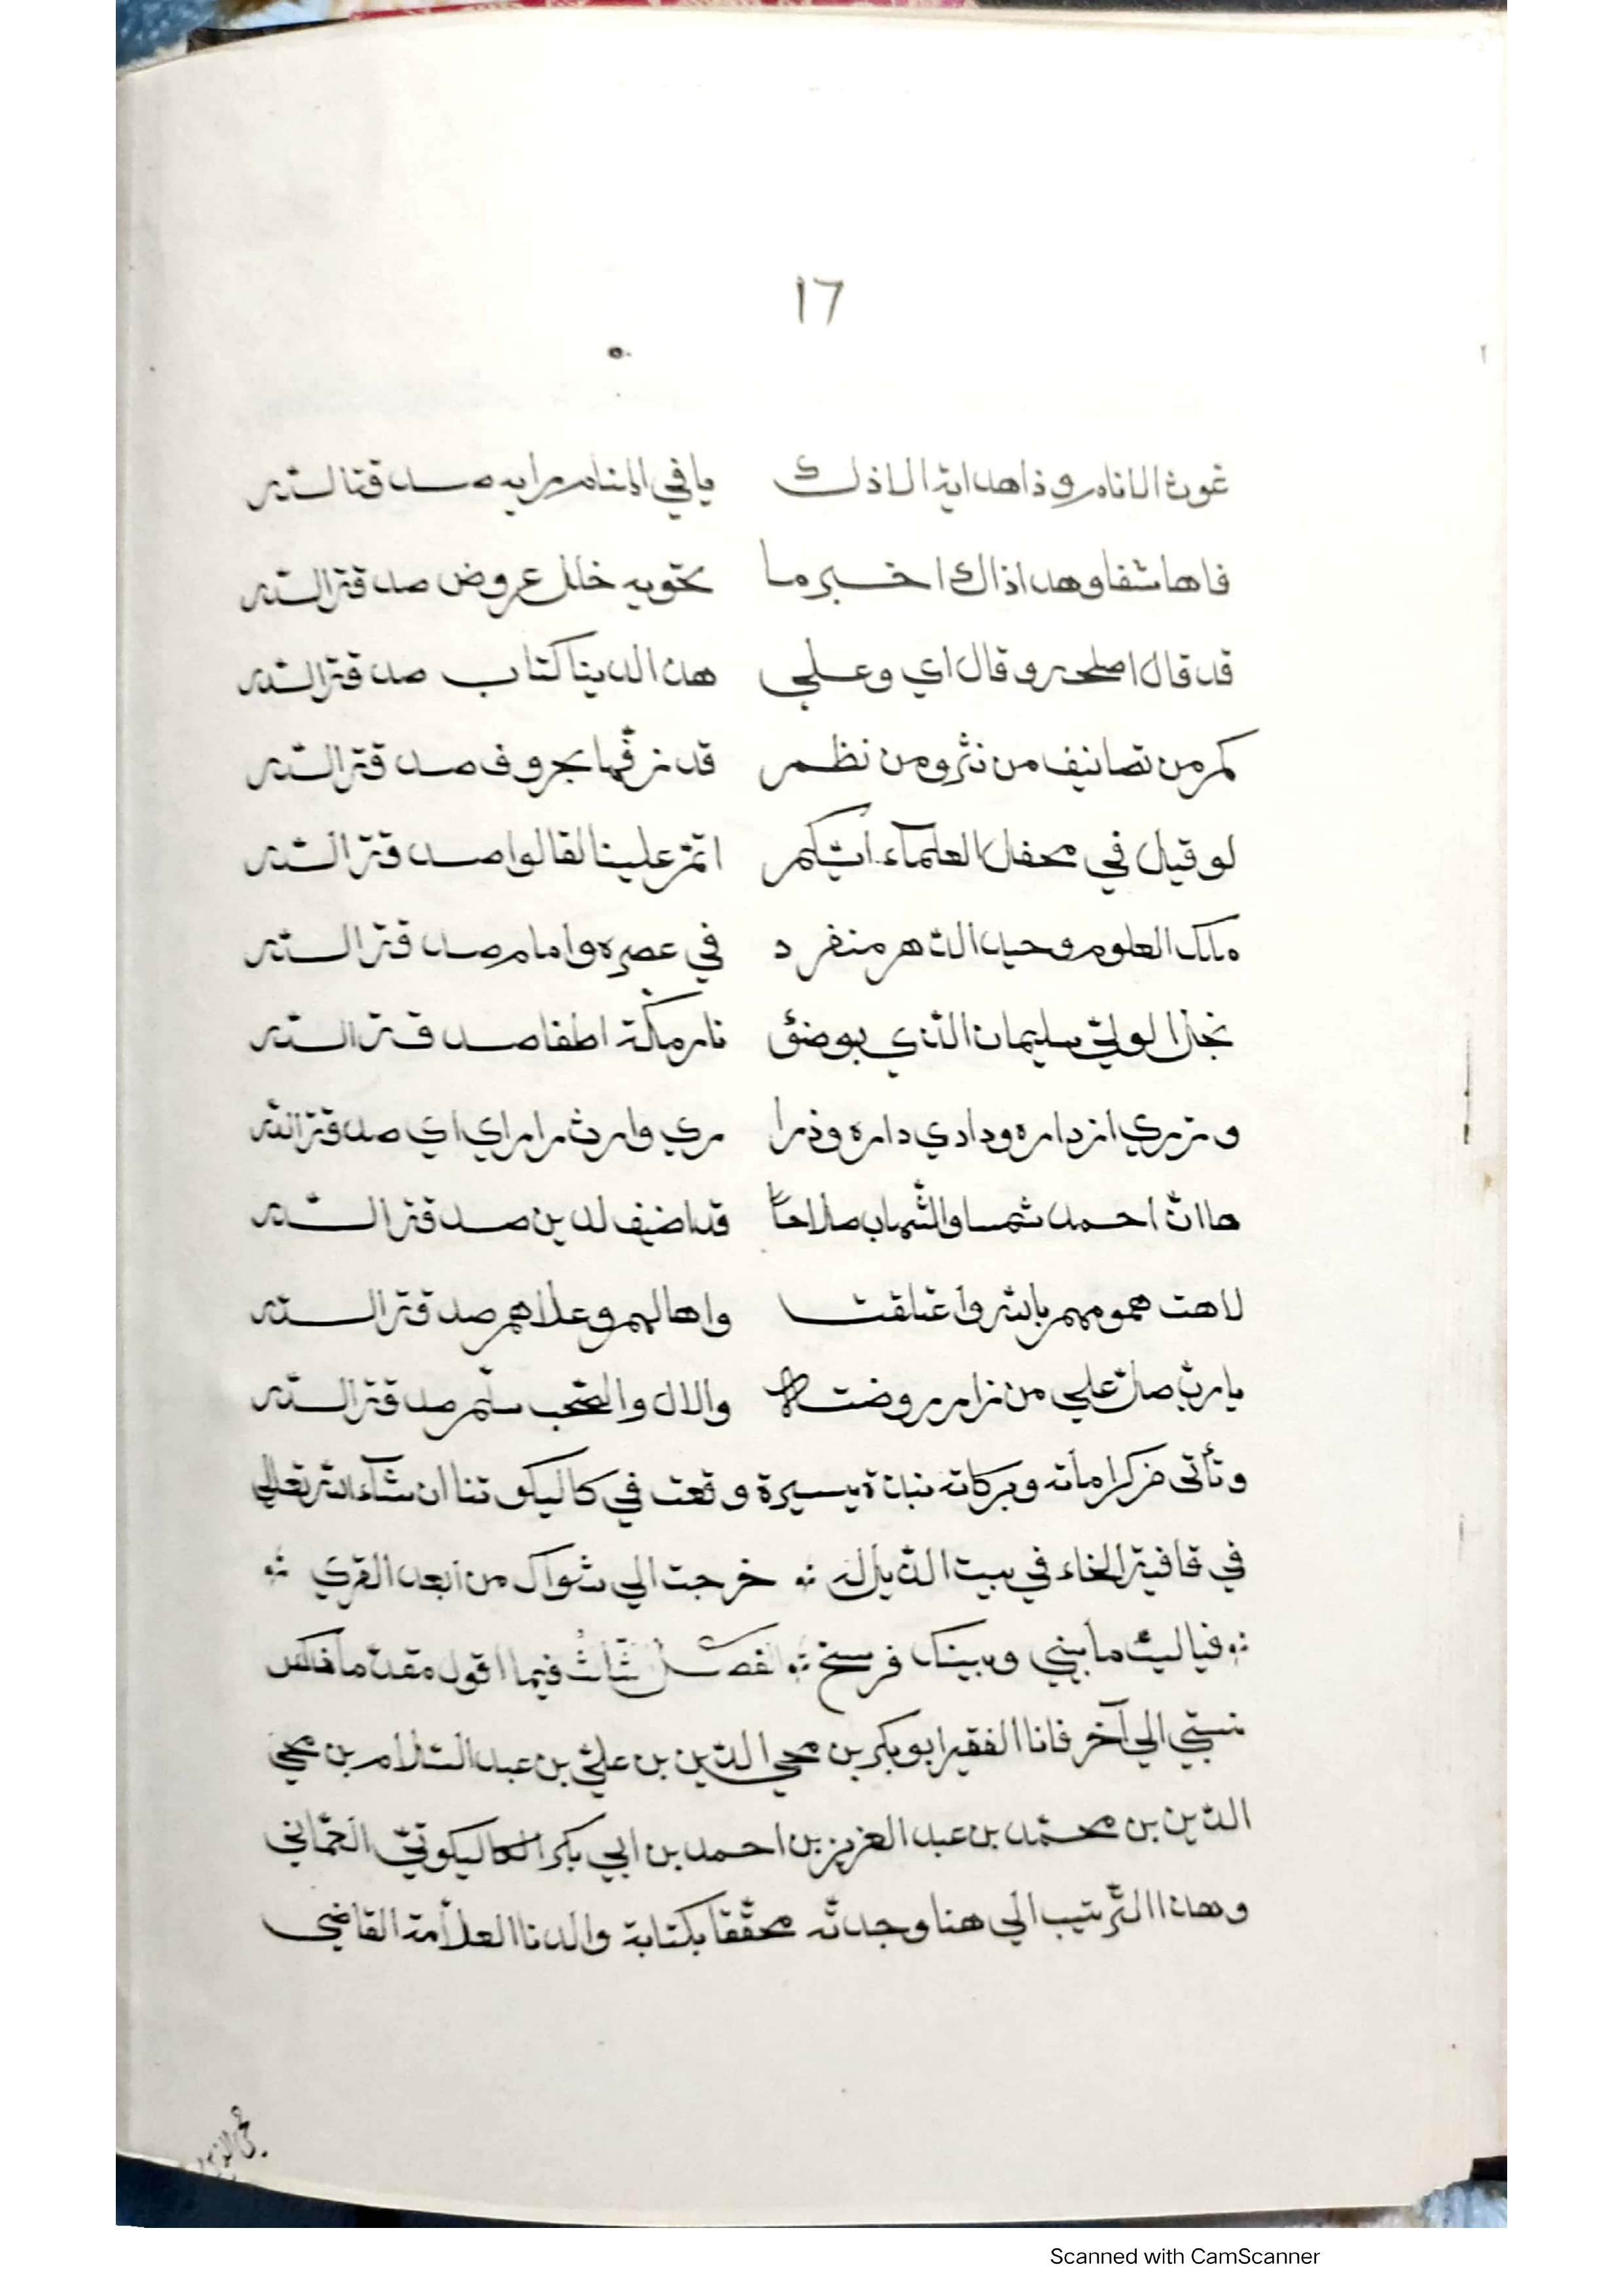 ١٦
غوث الانام وذا هداية الاذلك يا في المنام براية صدقة الله
فاها شفا وهداذاك اخبرما تحويه خلل عروض صدقة الله
قد قال اصلحه وقال اي وعلي هذا لدينا كتاب صدقة الله
كم من تصانيف من نثر ومن نظم قد بحروف صدقة الله
لو قيل في محفل العلماء ايكم اتم علينا لقالوا صدقة الله
ملك العلوم وحيد الدهر منفرد في عصره وامام صدقة الله
نجل الولي سليمان الذي بوضئ نار مكة اطفا صدقة الله
وزري از داره ودادي داره وذرا ري وارث راراي اي صدقة الله
ها ان احمد شمسا والشهاب صلاحا قد اضيف لدين صدقة الله
لاهت همومهم بالله واعتلقت واها لهم وعلاهم صدقة الله
يارب صل علي من زار روضته والال والصحب سلم صدقة الله
وتأتى من كراماته وبركاته نبذة يسيرة وقعت في كاليكوتنا ان شاء الله تعالي
في قافية الخاء في بيت الذيل له ؞ خرجت الي شواك من ابعد القري ؞
؞ فيا ليت ما بيني وبينك فرسخ ؞ الفصل ثالث فيما اقول مقدما ذاكر
نسبتي الي آخر فانا الفقير ابو بكر بن محي الدين بن علي بن عبد السلام بن محي
الدين بن محمد بن عبد العزيز بن احمد بن ابي بكر الكاليكوتي العثماني
وهذا الترتيب الي هنا وجدته محققا بكتابة والدنا العلامة القاضي
محي الدين
Scanned with CamScanner